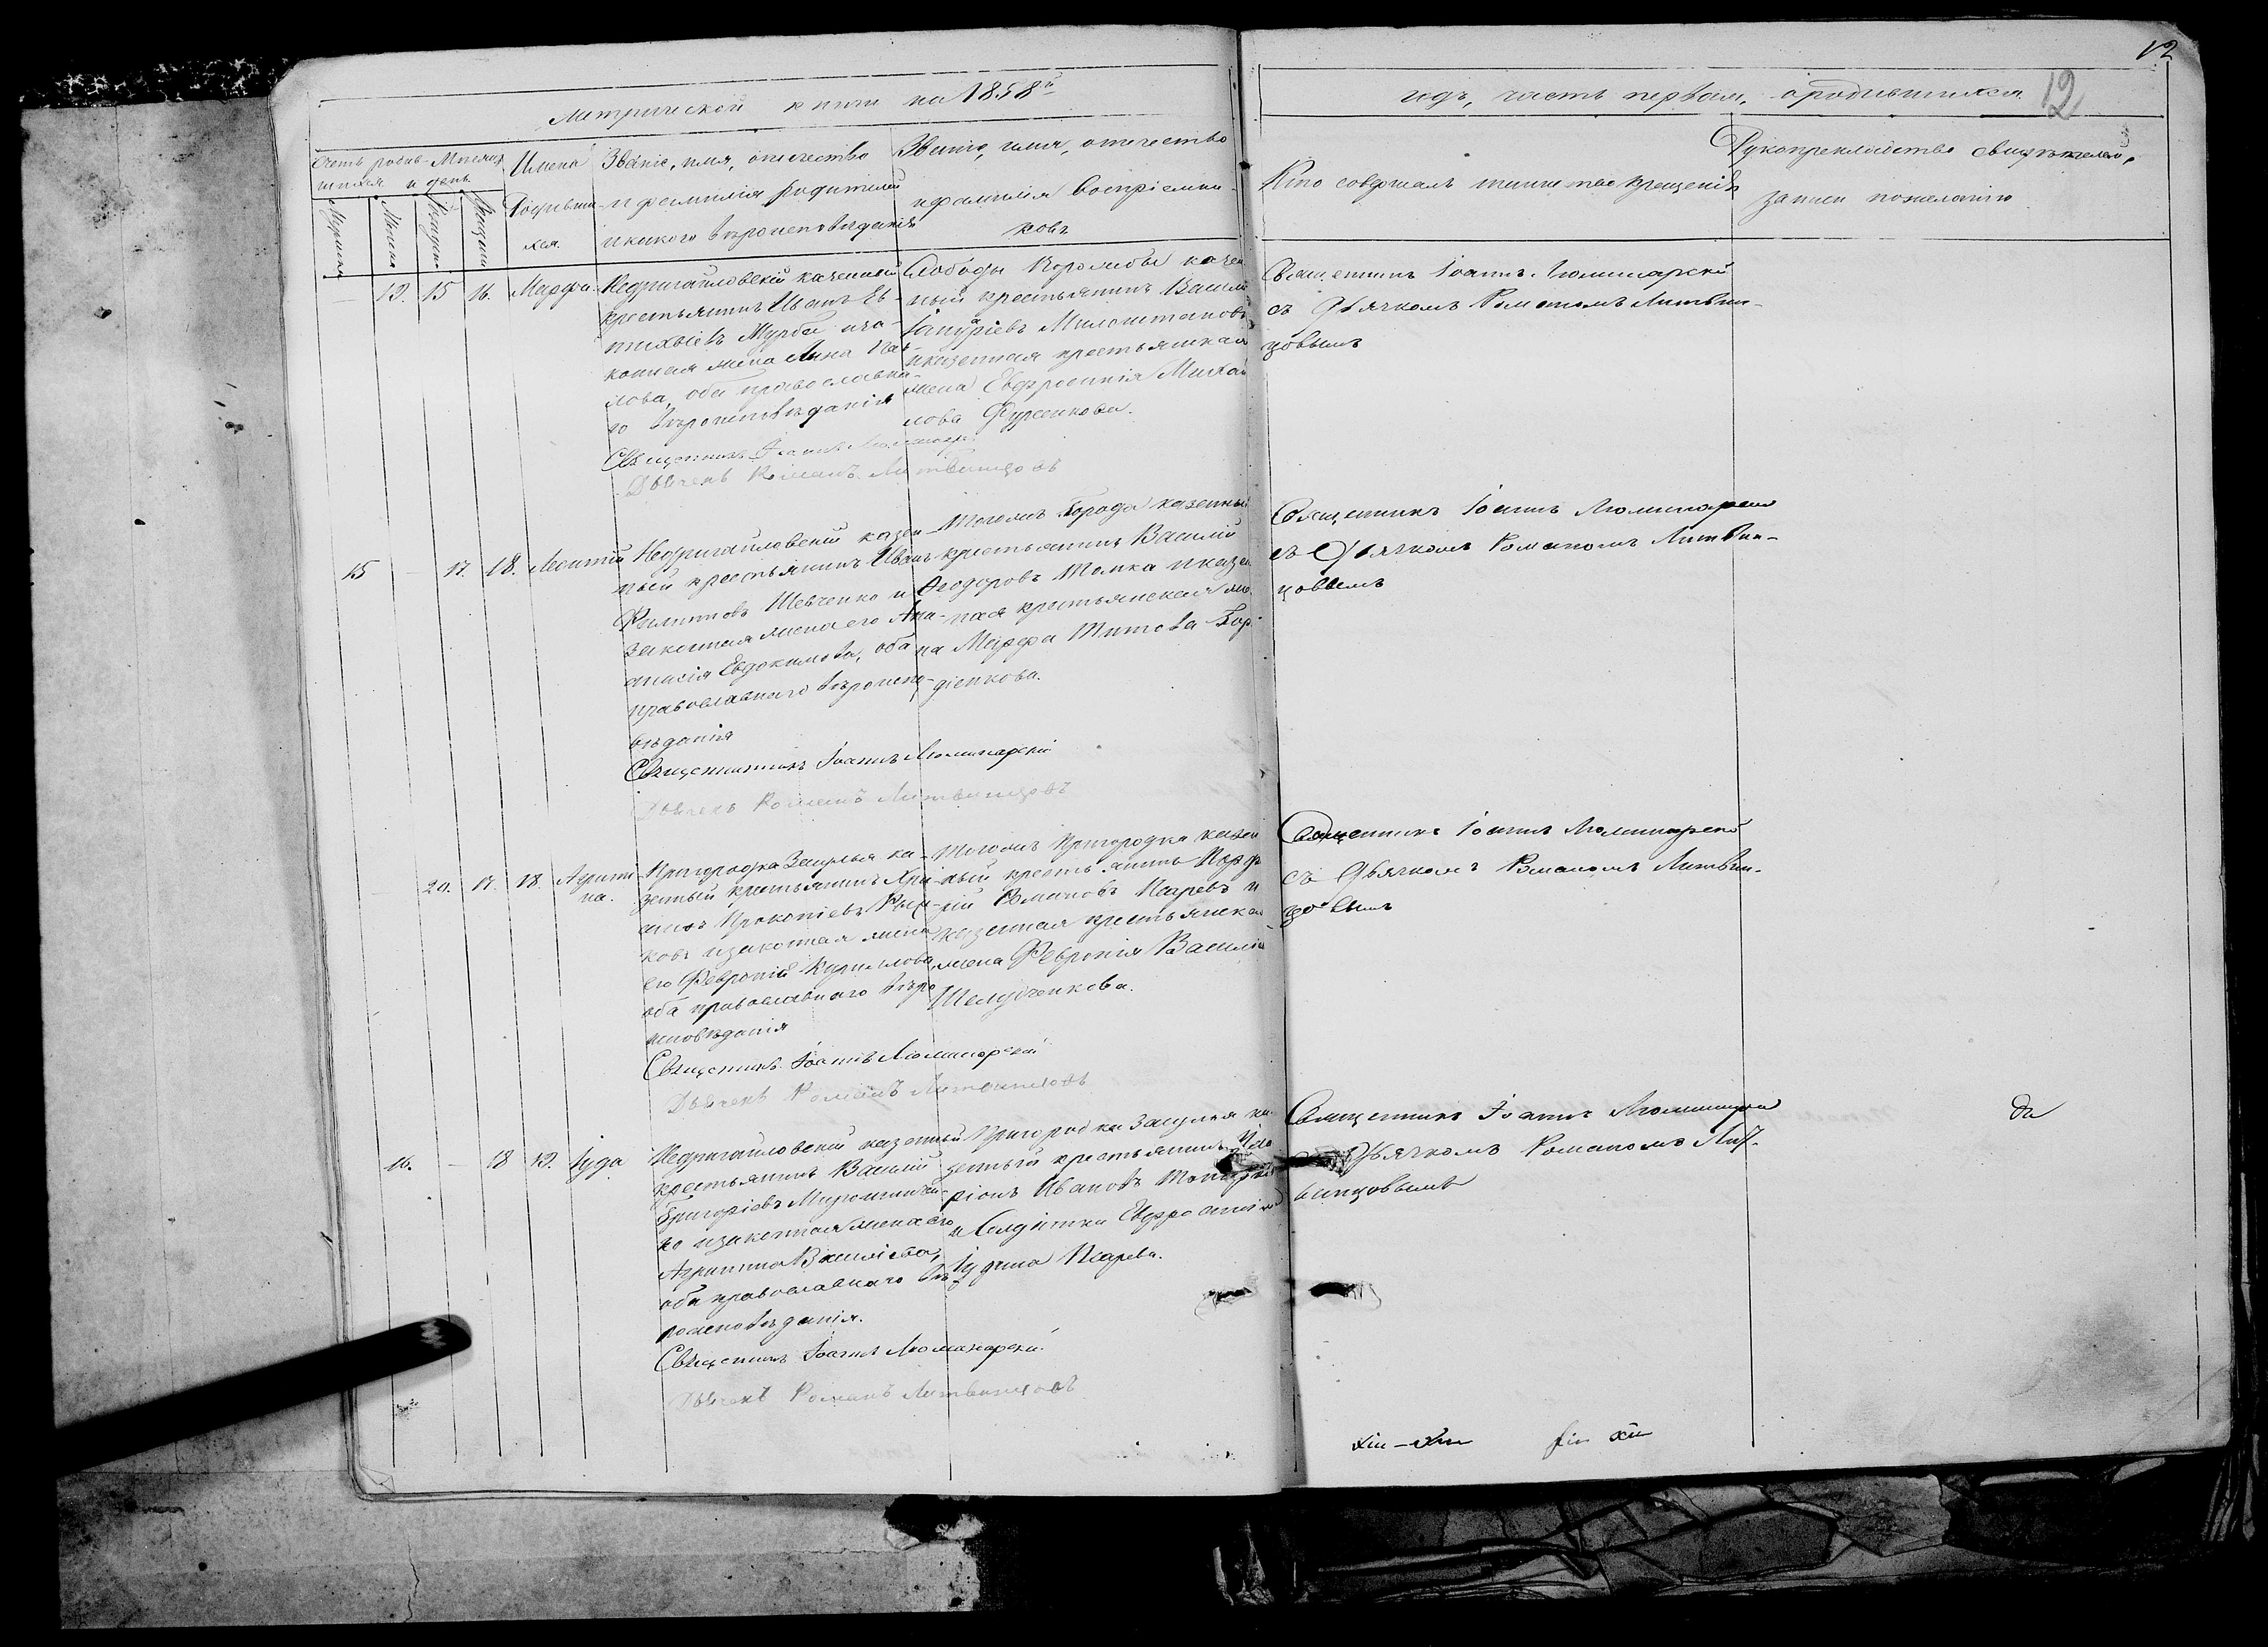 Метрической книги на 1858й
годъ, часть первая, о родившихся.
12
12
Счетъ родив-
шихся
Месяцъ
и день
Мужеска
Женска
Рожденія
Крещенія
Имена
Родивши-
хся.
Званіе, имя, отечество
и фамилія родителей
и какого вѣроисповѣданія
Званіе, имя, отечество
и фамилія воспріемни-
ковъ
Кто совершалъ таинство крещенія
Рукоприкладство свидѣтелей
записи по желанію
— 19. 15 16. Марфа
Недригайловскій казенный
крестьянинъ Иванъ Ев-
тихіевъ Журба и за-
конная жена Анна Пав-
лова, оба православна-
го вѣроисповѣданія
Священникъ Іоаннъ Люминарскій
Дьячекъ Романъ Литвинцовъ
Слободы Коровинцы казен
ный крестьянинъ Васил
и казенная крестьянская
жена Евфросинія Михай
лова
Священникъ Іоаннъ Люминарскій
съ Дьячкомъ Романомъ Литвин-
цовымъ
15 — 17. 18. Леонтій
Недригайловскій казен-
ный крестьянинъ Иванъ
Филиповъ Шевченко и
законная жена его Ана-
стасія Евдокимова, оба
православнаго вѣроиспо-
вѣданія
Священникъ Іоаннъ Люминарскій
Дьячекъ Романъ Литвинцовъ
Тогожъ Города казенный
крестьянинъ Василій
Феодоровъ Томка и казен
ная крестьянская же
на Марфа Титова Гор
діенкова.
Священникъ Іоаннъ Люминарскій
съ Дьячкомъ Романомъ Литвин-
цовымъ
— 20. 17. 18. Агрипи
на.
Пригородка Засулья ка-
зенный крестьянинъ Хри-
санъ Прокопіевъ
ковъ и законная жена
его Февронія Кирилова,
оба православнаго вѣро
исповѣданія
Священникъ Іоаннъ Люминарскій
Дьячекъ Романъ Литвинцовъ
Тогожъ Пригородка казен
ный крестьянинъ Порфи
рій Романовъ Псаревъ и
казенная крестьянская
жена Февронія Василіе
Шелудченкова.
Священникъ Іоаннъ Люминарскій
съ Дьячкомъ Романомъ Литвин-
цовымъ
16. — 18 19. Іуда
Недригайловскій казенный
крестьянинъ Василій
Григоріевъ Мирошничен-
ко и законная жена его
Агрипина Василіева,
оба православнаго вѣ-
роисповѣданія.
Священникъ Іоаннъ Люминарскій.
Дьячекъ Романъ Литвинцовъ
Пригородка Засулья ка-
зенный крестьянинъ Ила
ріонъ Ивановъ
и Солдатка Евфросинія
Іудина Псарева.
Священникъ Іоаннъ Люминарскій
Дьячкомъ Романомъ Лит-
винцовымъ